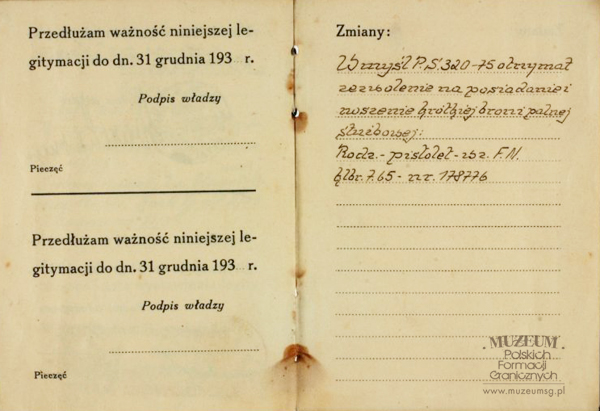 Przedłużam ważność niniejszej le-
gitymacji do dn. 31 grudnia 193 r.
Podpis władzy
Pieczęć
Przedłużam ważność niniejszej le-
gitymacji do dn. 31 grudnia 193 r.
Podpis władzy
Pieczęć
Zmiany:
W myśl P.S. 320-75 otrzymał
zezwolenie na posiadanie i
noszenie krótkiej broni palnej
służbowej:
Rodz. - pistolet - wz. F.N.
klbr. 7.65 - nr. 178776
MUZEUM
Polskich
Formacji
Granicznych
www.muzeumsg.pl